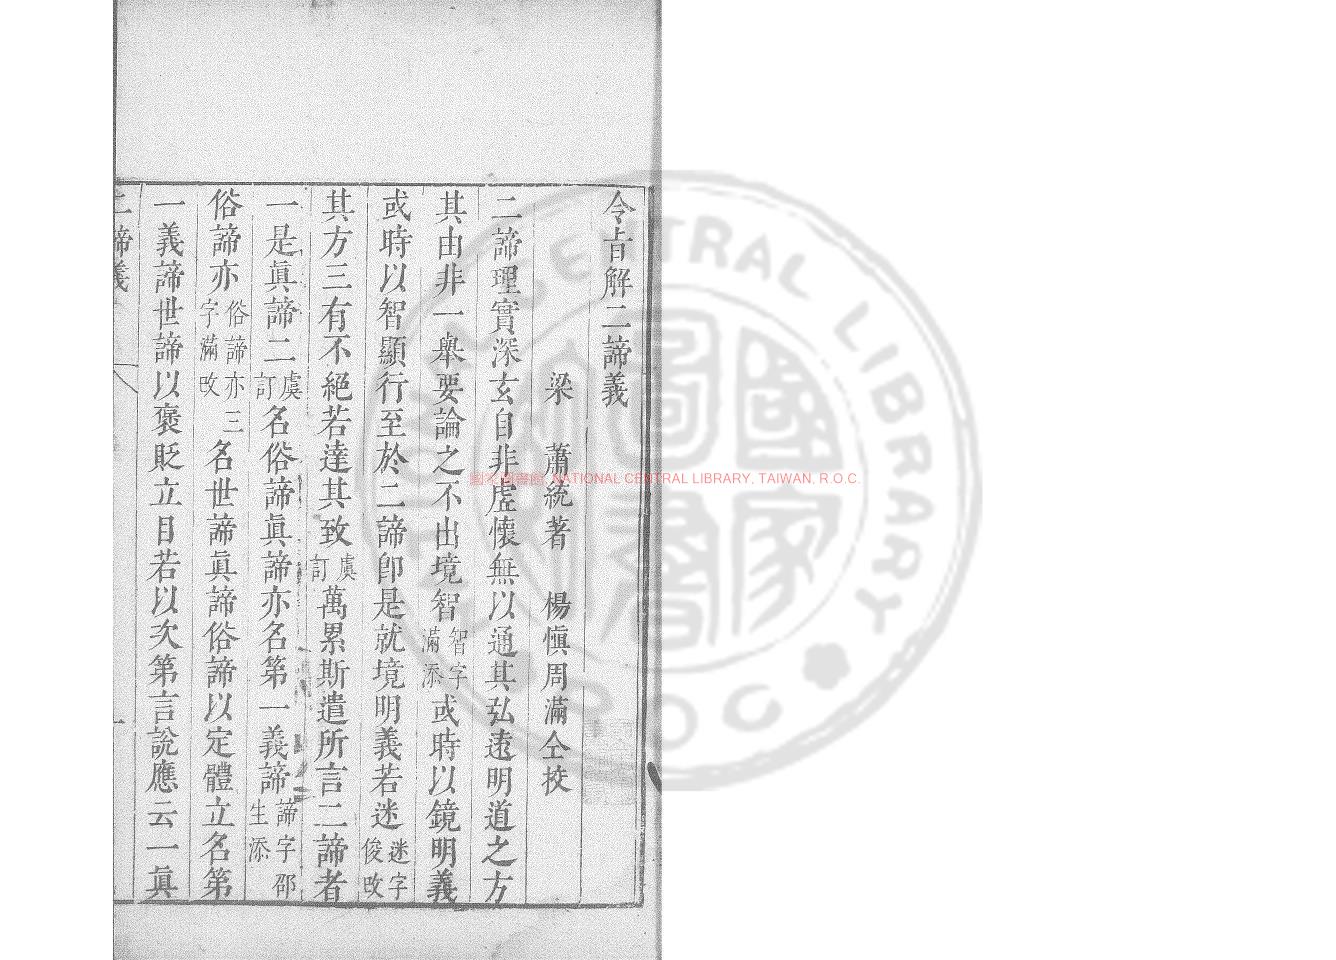 令旨解二諦義
梁　蕭統著　楊愼周滿仝挍
二諦理實深玄自非虛懷無以通其弘遠明道之方
其由非一舉要論之不出境智智字滿添或時以鏡明義
或時以智顯行至於二諦卽是就境明義若迷迷字俊改
其方三有不絕若達其致虞訂萬累斯遣所言二諦者
一是眞諦二虞訂名俗諦眞諦亦名第一義諦諦字邵生添
俗諦亦俗諦亦三字滿改名世諦眞諦俗諦以定體立名第
一義諦世諦以褒貶立目若以次第言說應云一眞
二諦義　一
國家圖書館, NATIONAL CENTRAL LIBRARY, TAIWAN, R.O.C.
NATIONAL CENTRAL LIBRARY R.O.C.
國家圖書